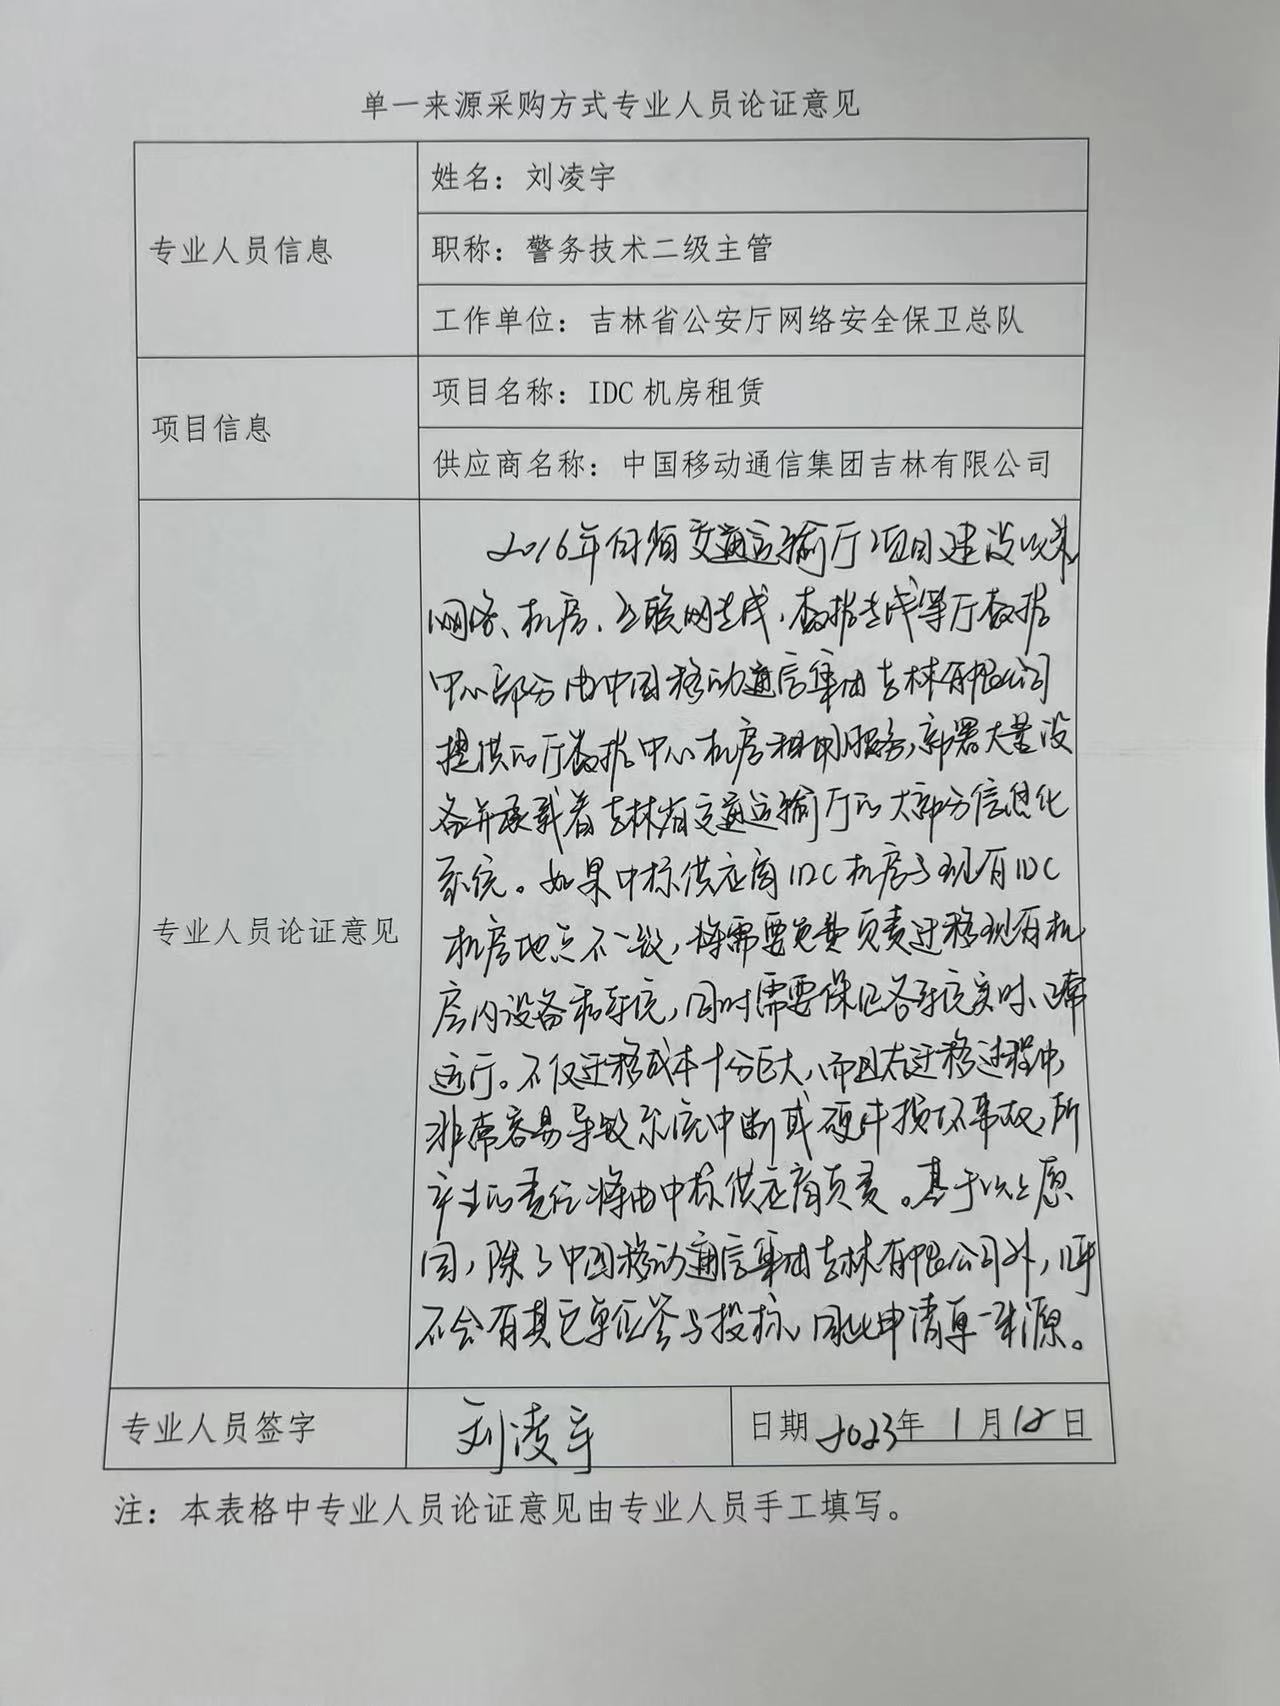 单一来源采购方式专业人员论证意见
专业人员信息
姓名：刘凌宇
职称：警务技术二级主管
工作单位：吉林省公安厅网络安全保卫总队
项目信息
项目名称：IDC机房租赁
供应商名称：中国移动通信集团吉林有限公司
专业人员论证意见
2016年自省交通运输厅项目建设以来
网络、机房、互联网专线，数据专线等厅数据
中心部分由中国移动通信集团吉林有限公司
提供的厅数据中心机房租用服务，部署大量设
备并承载着吉林省交通运输厅的大部分信息化
系统。如果中标供应商IDC机房与现有IDC
机房地点不一致，将需要免费负责迁移现有机
房内设备和系统，同时需要保证各系统实时、正常
运行。不仅迁移成本十分巨大，而且在迁移过程中，
非常容易导致系统中断或硬件损坏事故，所
产生的责任将由中标供应商负责。基于以上原
因，除了中国移动通信集团吉林有限公司外，
不会有其它单位参与投标，因此申请单一来源。
专业人员签字
刘凌宇
日期 2023年 1月18日
注：本表格中专业人员论证意见由专业人员手工填写。